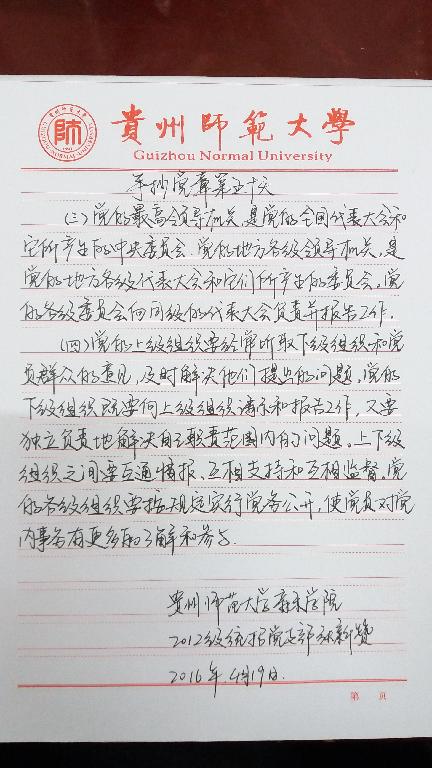 貴州師範大學
Guizhou Normal University
手抄党章第五十天
(三)党的最高领导机关,是党的全国代表大会和
它所产生的中央委员会。党的地方各级领导机关,是
党的地方各级代表大会和它们所产生的委员会。党
的各级委员会向同级的代表大会负责并报告工作。
(四)党的上级组织要经常听取下级组织和党
员群众的意见,及时解决他们提出的问题。党的
下级组织既要向上级组织请示和报告工作,又要
独立负责地解决自己职责范围内的问题。上下级
组织之间要互通情报、互相支持和互相监督。党
的各级组织要按规定实行党务公开,使党员对党
内事务有更多的了解和参与。
贵州师范大学求是学院
2012级统招党支部
2016年4月19日
第 页